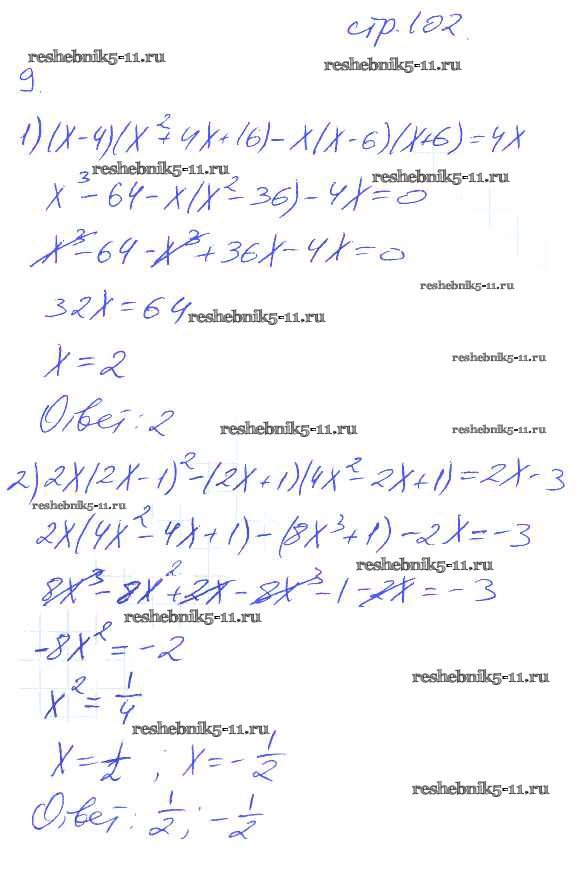 стр. 102.
reshebnik5-11.ru
reshebnik5-11.ru
9.
1) (x-4)(x²+4x+16)-x(x-6)(x+6)=4x
reshebnik5-11.ru
reshebnik5-11.ru
x³-64-x(x²-36)-4x=0
x³-64-x³+36x-4x=0
reshebnik5-11.ru
32x=64
reshebnik5-11.ru
x=2
reshebnik5-11.ru
Ответ: 2
reshebnik5-11.ru
reshebnik5-11.ru
2) 2x(2x-1)²-(2x+1)(4x²-2x+1)=2x-3
reshebnik5-11.ru
2x(4x²-4x+1)-(8x³+1)-2x=-3
reshebnik5-11.ru
8x³-8x²+2x-8x³-1-2x=-3
reshebnik5-11.ru
-8x²=-2
reshebnik5-11.ru
x²=1/4
reshebnik5-11.ru
x=1/2; x=-1/2
reshebnik5-11.ru
Ответ: 1/2; -1/2